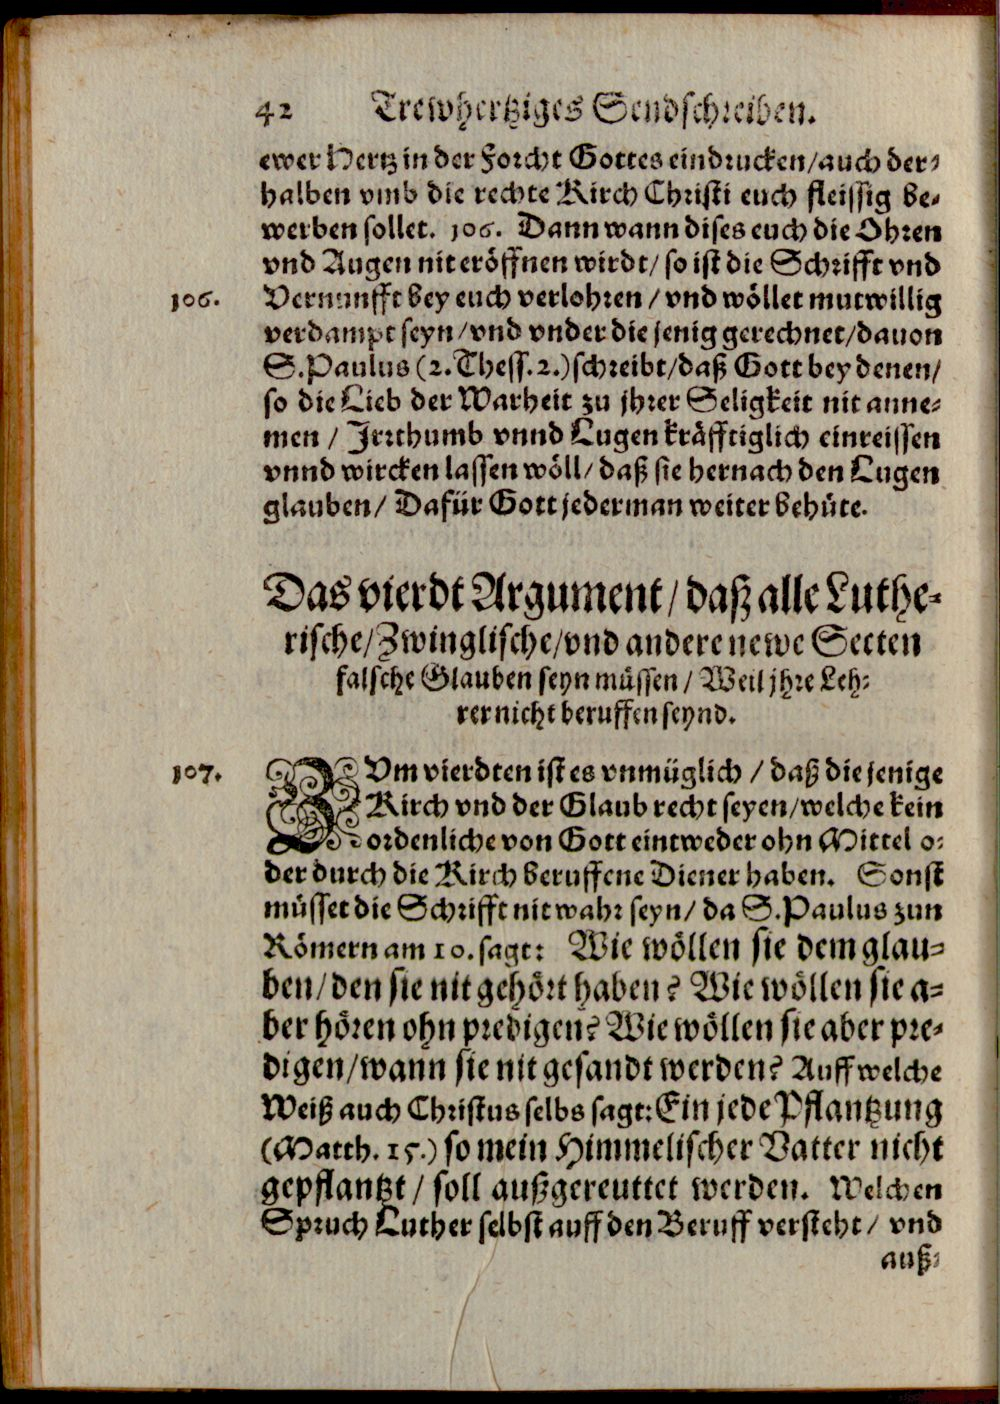 42 Trewhertziges Sendschreiben.
ewer Hertz in der Forcht Gottes eindrucken/auch der-
halben vmb die rechte Kirch Christi euch fleissig be-
werben sollet. 106. Dann wann dises euch die Ohren
vnd Augen nit eröffnen wirdt/ so ist die Schrifft vnd
106. Vernunfft bey euch verlohren / vnd wöllet mutwillig
verdampt seyn/vnd vnder die jenig gerechnet/dauon
S. Paulus (2. Thess. 2.) schreibt/daß Gott bey denen/
so die Lieb der Warheit zu jhrer Seligkeit nit anne-
men / Irrthumb vnnd Lugen kräfftiglich einreissen
vnnd wircken lassen wöll/ daß sie hernach den Lugen
glauben/ Dafür Gott jederman weiter behüte.
Das vierdt Argument/ daß alle Luthe-
rische/Zwinglische/vnd andere newe Secten
falsche Glauben seyn müssen/ Weil jhre Leh-
rer nicht beruffen seynd.
107. ZVm vierdten ist es vnmüglich / daß die jenige
Kirch vnd der Glaub recht seyen/welche kein
ordenliche von Gott eintweder ohn Mittel o-
der durch die Kirch beruffene Diener haben. Sonst
müsset die Schrifft nit wahr seyn/ da S. Paulus zun
Römern am 10. sagt: Wie wöllen sie dem glau-
ben/den sie nit gehört haben? Wie wöllen sie a-
ber hören ohn predigen? Wie wöllen sie aber pre-
digen/wann sie nit gesandt werden? Auff welche
Weiß auch Christus selbs sagt: Ein jede Pflantzung
(Matth. 15.) so mein Himmelischer Vatter nicht
gepflantzt / soll außgereuttet werden. Welchen
Spruch Luther selbst auff den Beruff versteht/ vnd
auß-